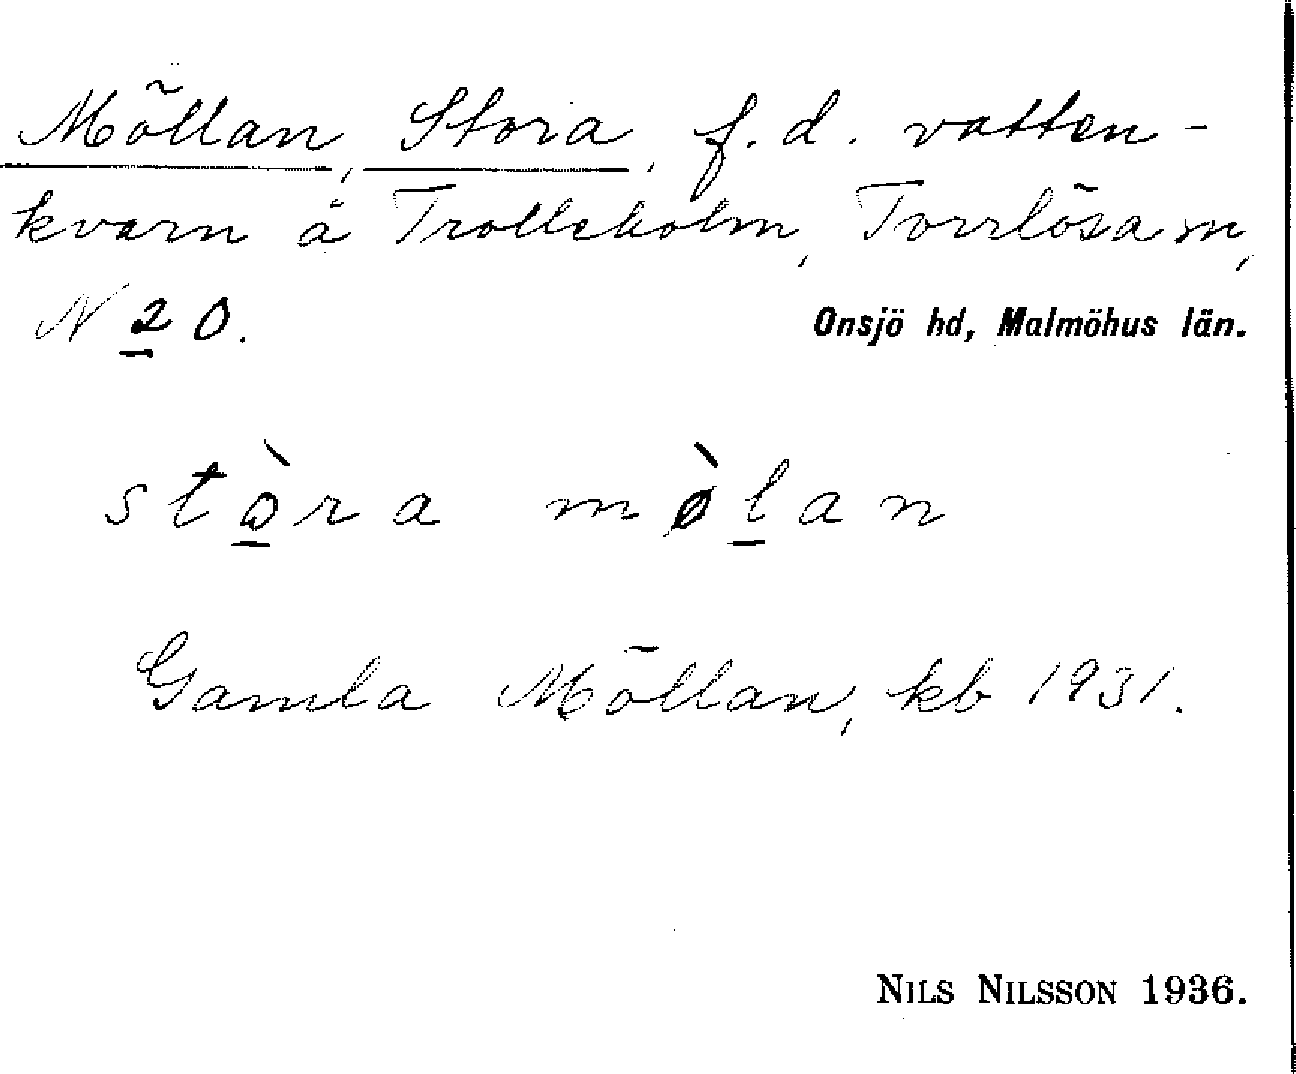 Möllan, Stora, f. d. vatten-
kvarn å Trolleholm, Torrlösa sn,
N 2 0. Onsjö hd, Malmöhus län.
stò̱ra mø̀ḻan
Gamla Möllan, kb 1931.
NILS NILSSON 1936.